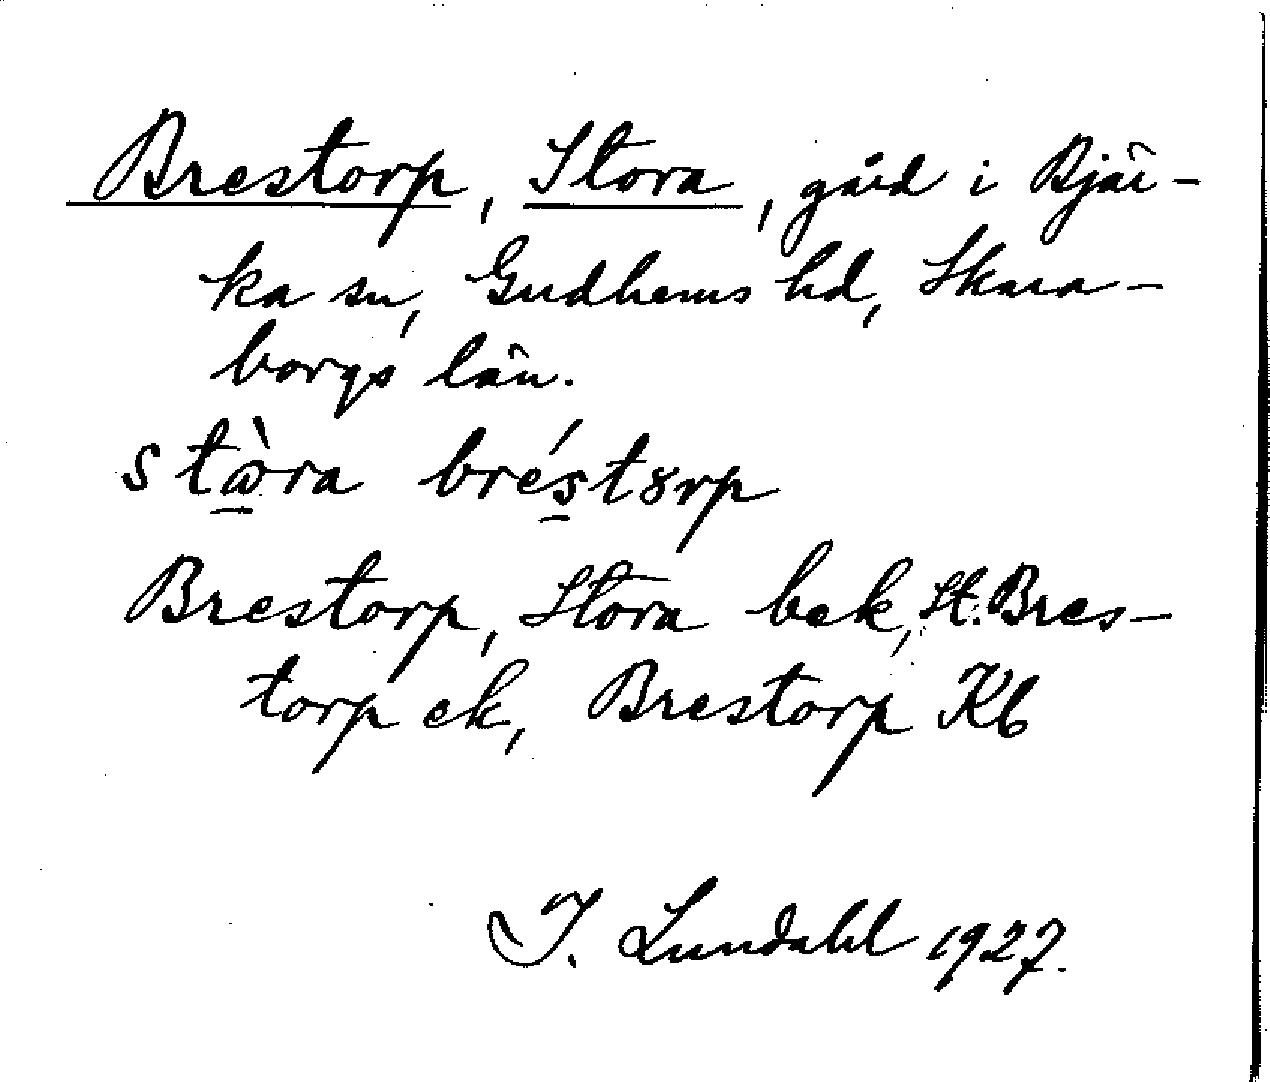 Brestorp, Stora, gård i Bjär-
ka sn, Gudhems hd, Skara-
borgs län.
stὼ̱ra brés̱tȣrp
Brestorp, Stora bek, St. Bres-
torp ek, Brestorp Kb
I. Lundahl 1927.